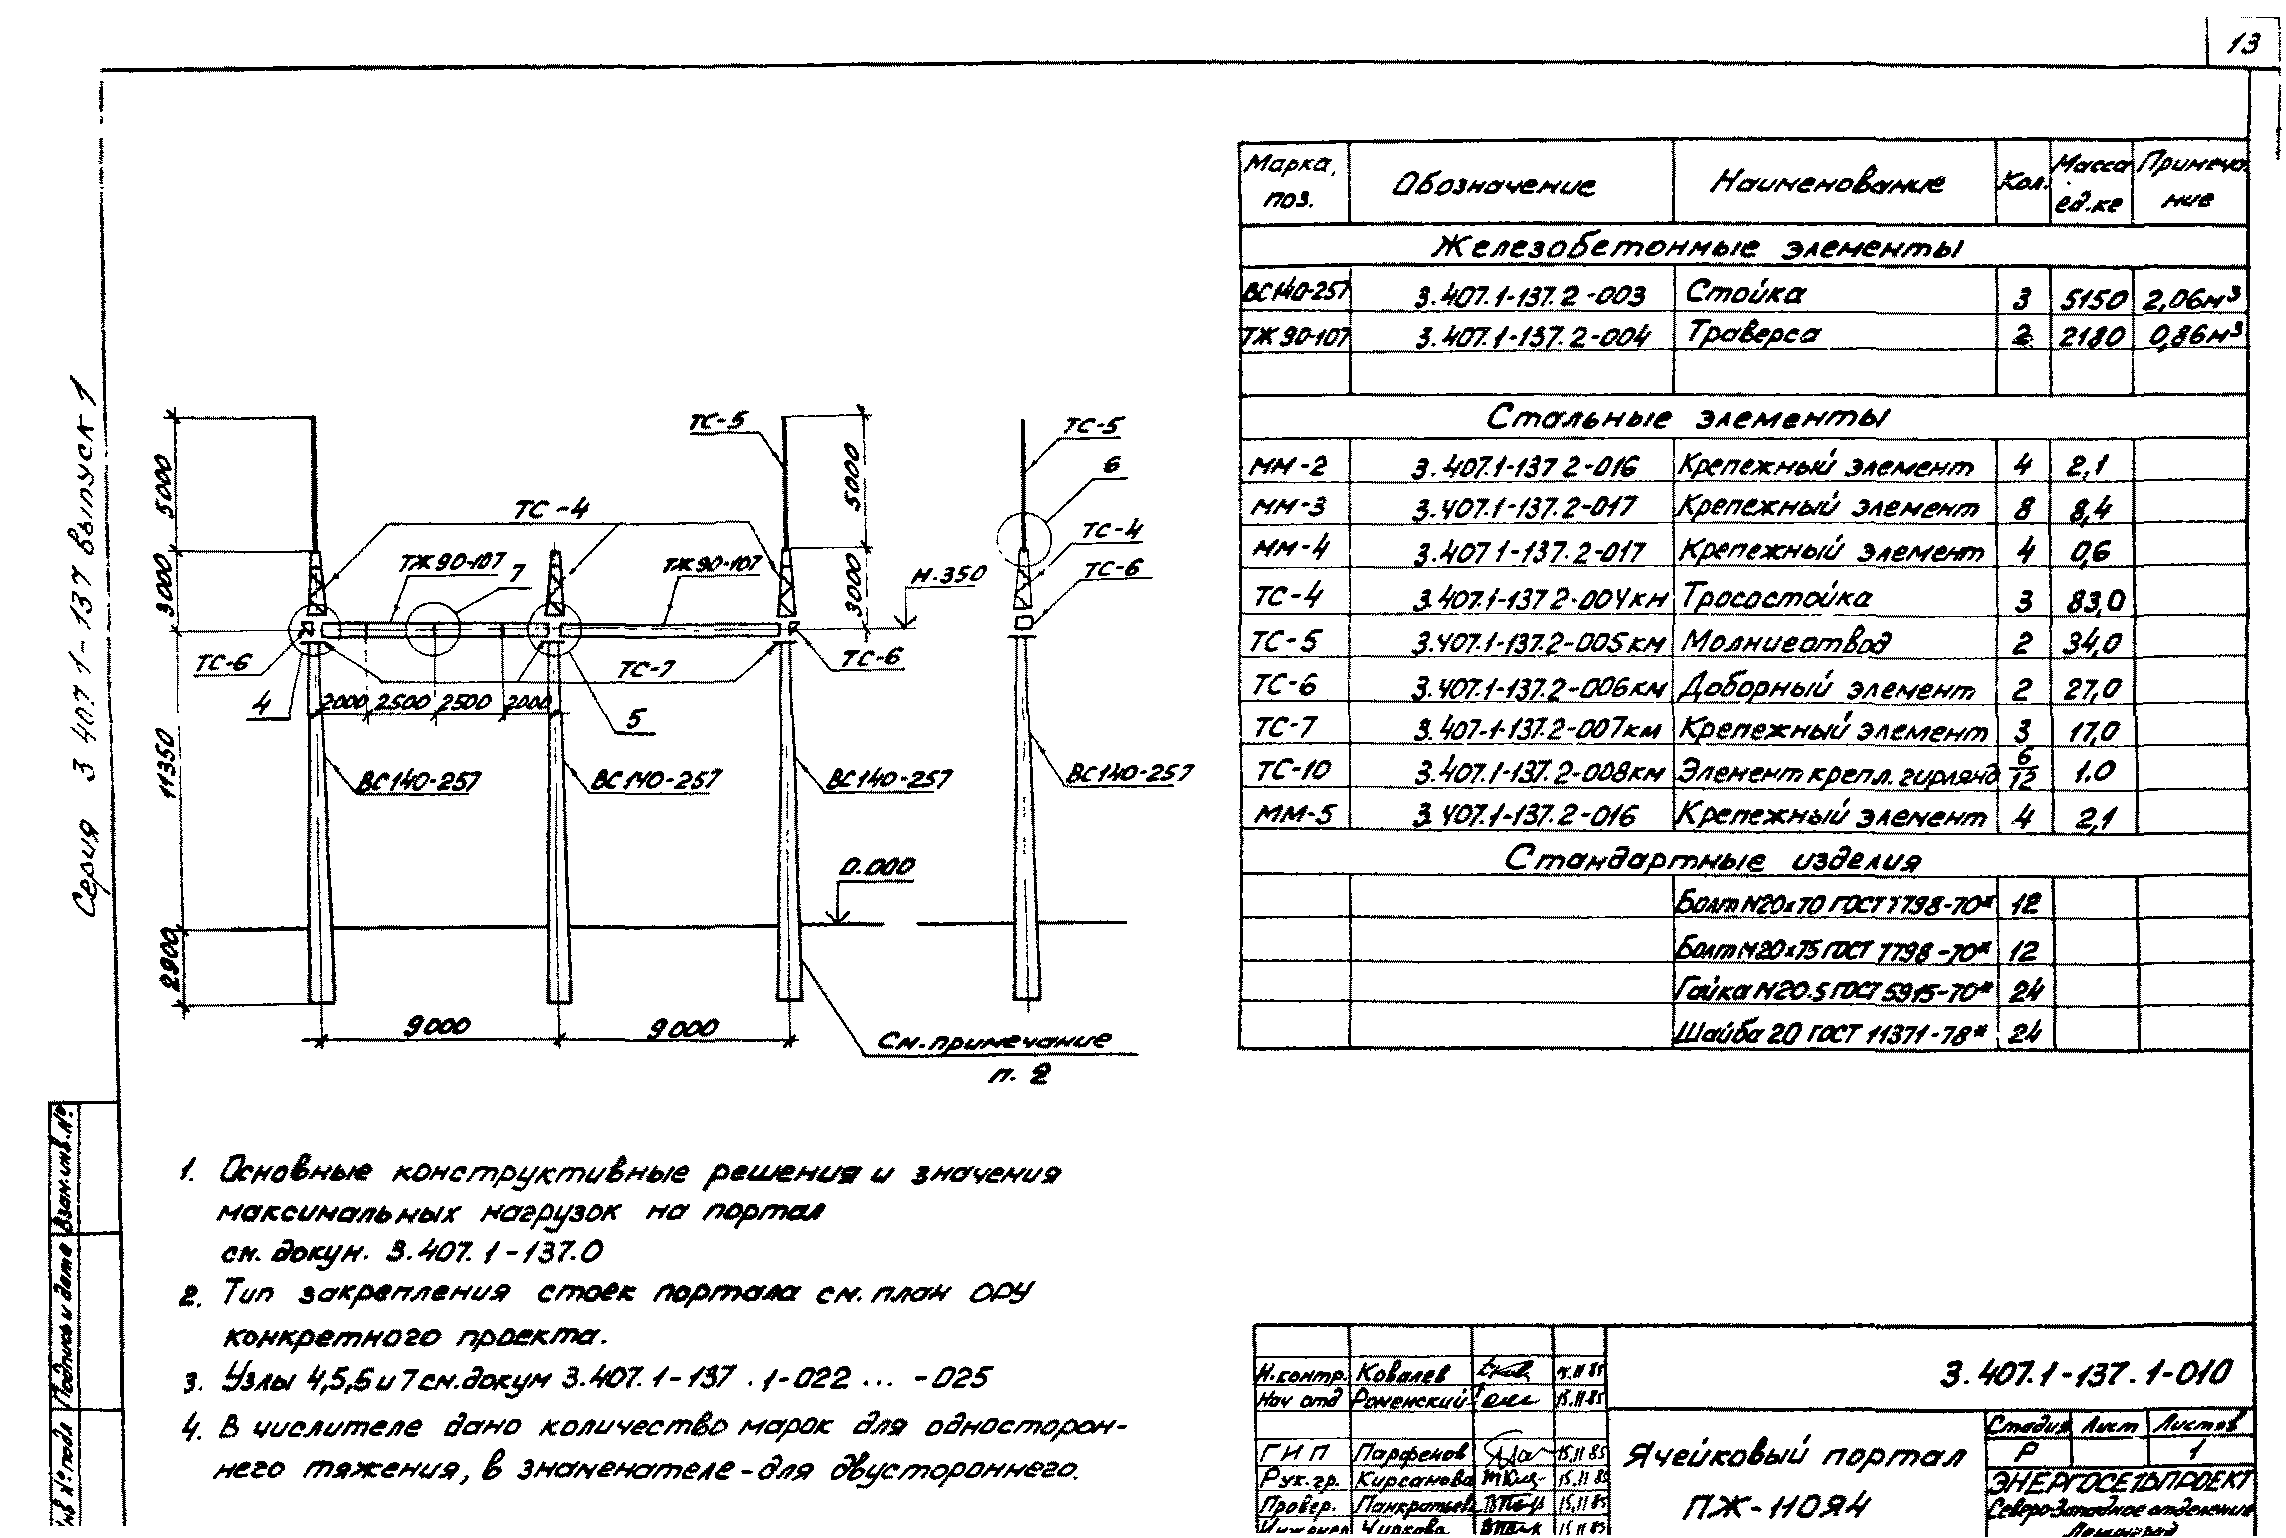 13
Серия 3 407 1-137 выпуск 1
5000
3000
11350
2900
ТС-5
5000
3000
ТС-4
ТЖ90-107
7
ТЖ90-107
Н.350
ТС-6
4
ТС-7
ТС-6
2000 2500 2500 2000
5
ВС140-257
ВС140-257
ВС140-257
0.000
9000
9000
См. примечание
п. 2
ТС-5
6
ТС-4
ТС-6
ВС140-257
Марка, поз. Обозначение Наименование Кол. Масса ед.ке Примеча ние
Железобетонные элементы
ВС140-257 3.407.1-137.2-003 Стойка 3 5150 2,06м³
ТЖ90-107 3.407.1-137.2-004 Траверса 2 2180 0,86м³
Стальные элементы
ММ-2 3.407.1-137 2-016 Крепежный элемент 4 2,1
ММ-3 3.407.1-137.2-017 Крепежный элемент 8 8,4
ММ-4 3.407 1-137.2-017 Крепежный элемент 4 0,6
ТС-4 3.407.1-137 2-004км Тросостойка 3 83,0
ТС-5 3.407.1-137.2-005км Молниеотвод 2 34,0
ТС-6 3.407.1-137.2-006км Доборный элемент 2 27,0
ТС-7 3.407-1-137.2-007км Крепежный элемент 3 17,0
ТС-10 3.407.1-137.2-008км Элемент крепл. гирлянд 6/12 1.0
ММ-5 3.407.1-137.2-016 Крепежный элемент 4 2,1
Стандартные изделия
Болт М20х70 ГОСТ 7798-70* 12
Болт М20х75 ГОСТ 7798-70* 12
Гайка М20.5 ГОСТ 5915-70* 24
Шайба 20 ГОСТ 11371-78* 24
1. Основные конструктивные решения и значения
максимальных нагрузок на портал
см. докум. 3.407.1-137.0
2. Тип закрепления стоек портала см. план ОРУ
конкретного проекта.
3. Узлы 4,5,6 и 7 см. докум 3.407.1-137.1-022 ... -025
4. В числителе дано количество марок для односторон-
него тяжения, в знаменателе - для двустороннего.
Взам.инв.№
Подпись и дата
Инв № подл
Н.контр. Ковалев 15.11 85
Нач отд Роменский 15.11 85
ГИП Парфенов 15.11 85
Рук.гр. Кирсанова 15.11 85
Провер. Панкратьева 15.11 85
Инженер Чиркова 15.11 85
3.407.1-137.1-010
Ячейковый портал
ПЖ-110Я4
Стадия Лист Листов
Р 1
ЭНЕРГОСЕТЬПРОЕКТ
Северо-Западное отделение
Ленинград